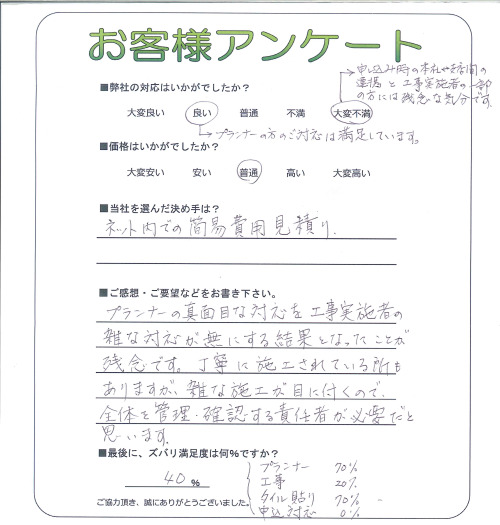 お客様アンケート
申し込み時の本社や店間の
連携と工事実施者の一部
の方には残念な気分です。
■弊社の対応はいかがでしたか?
大変良い 良い 普通 不満 大変不満
プランナーの方のご対応は満足しています。
■価格はいかがでしたか?
大変安い 安い 普通 高い 大変高い
■当社を選んだ決め手は?
ネット内での簡易費用見積り.
■ご感想・ご要望などをお書き下さい。
プランナーの真面目な対応を工事実施者の
雑な対応が無にする結果となったことが
残念です。丁寧に施工されている所も
ありますが、雑な施工が目に付くので、
全体を管理・確認する責任者が必要だと
思います。
■最後に、ズバリ満足度は何%ですか?
40 %
プランナー 70%
工事 20%
タイル貼り 70%
申込対応 0%
ご協力頂き、誠にありがとうございました。